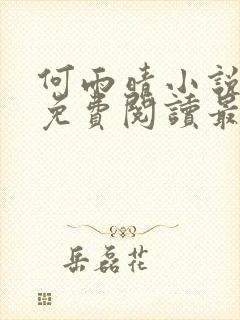 何雨晴小說
免費閱讀最
岳磊花